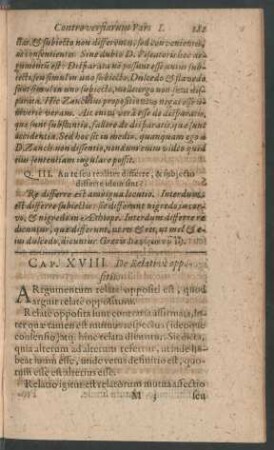 Controversiarum Pars I.
tia, & subiecto non differentia, sed convenientia,
non consentientia. Sine dubio D. Piscatoris hoc ar-
gumentũ est: Disparata nõ possunt esse unius subie-
cti, seu simul in uno subiecto. Dulcedo & flavedo
sunt simul in uno subiecto, mellis ergo non sunt dis-
parata. Hic Zanchius propositionem negat esse u-
niverse veram. An enim vera est de disparatis,
quæ sunt substantiæ, falsa de disparatis, quæ sunt
accidentia. Sed hoc sic in medio, quanquam ego à
D. Zanch. non dissentio, nondum enim video quid
eius sententiam iugulare possit.
Q. III. An ita seu re differre, & subjecto
differre idem sint?
Re differre est ambigua locutio. Interdum
est differre subiecto: sic differunt nigredo in cor-
vo, & nigredo in Æthiope. Interdum differre re
dicuntur, quæ differunt, ut res & res, ut mel &
eius dulcedo, dicuntur Græcis
CAP. XVIII. De Relatis oppo-
sitis.
ARgumentum relatè oppositi est, quod
arguit relatè oppositum.
Relatè opposita sunt contraria affirmata, in-
ter quæ tamen est mutuus respectus (ideoque
consensio) atq; hinc relata dicunt. Sic dicta,
quia alterum ad alterum refertur, utinde ha-
beat suum esse, unde vetus definitio est, quo-
rum esse est ad alterius esse.
Relatio igitur est relatorum mutua affectio
M seu